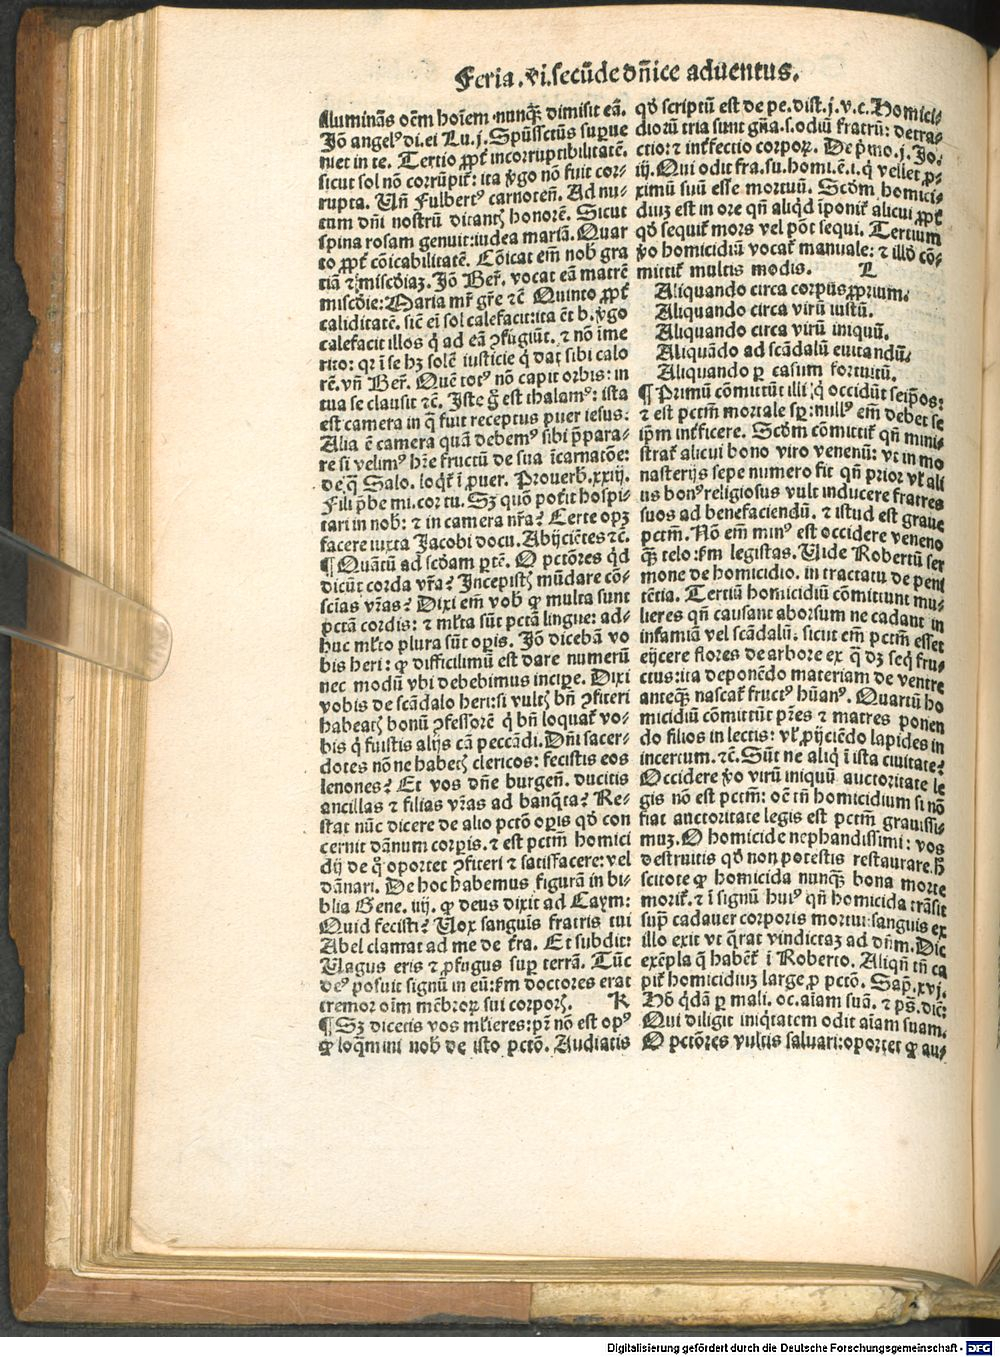 Feria.vi.secũde dñice aduentus.
illuminãs oẽm hoĩem nunꝗ̃ dimisit eã.
Jõ angelꝰ di.ei Lu.j.Spũssctũs supue
niet in te. Tertio ꝓpt̃ incorruptibilitatẽ.
sicut sol nõ corrũpit̃: ita ṽgo nõ fuit cor-
rupta. Uñ Fulbertꝰ carnoteñ. Ad nu-
tum dñi nostrũ ditantꝭ honorẽ. Sicut
spina rosam genuit:iudea mariã. Quar
to ꝓpt̃ cõicabilitatẽ. Cõicat em̃ nob̃ gra
tiã ⁊ miscd̃iaꝫ. Jõ Ber̃. vocat eã matrẽ
miscd̃ie:Maria mr̃ gr̃e ⁊c̃ Quinto ꝓpt̃
caliditatẽ. sic̃ em̃ sol calefacit:ita ẽt b.ṽgo
calefacit illos q̇ ad eã ꝯfugiũt. ⁊ nõ ĩme
rito: qꝛ ĩ se hꝫ solẽ iusticie q̇ dat sibi calo
rẽ.vñ Ber̃. Quẽ totꝰ nõ capit orbis: in
tua se clausit ⁊c̃. Iste g̃ est thalamꝰ: ista
est camera in q̃ fuit receptus puer iesus:
Alia ẽ camera quã debemꝰ sibi p̃para-
re si velimꝰ hr̃e fructũ de sua ĩcarnatõe:
de q̃ Salo. loqt̃ ĩ puer. Prouerb̃.xxiij.
Fili p̃be mi.cor tu. Sꝫ quõ pot̃it hospi-
tari in nob̃: ⁊ in camera nr̃a? Certe opꝫ
facere iuxta Jacobi docu. Abijciẽtes ⁊c̃.
¶ Quãtũ ad scd̃am ꝑtẽ. O pctõres qd̃
dicũt corda vr̃a? Incepistꝭ mũdare cõ-
sciẽtias vr̃as? Dixi em̃ vob̃ ꝙ multa sunt
pctã cordis: ⁊ ml̃ta sũt pctã lingue: ad-
huc ml̃to plura sũt oꝑis. Jõ dicebã vo
bis heri: ꝙ difficilimũ est dare numerũ
nec modũ vbi debebimus incipe. Dixi
vobis de scãdalo heri:si vultꝭ bñ ꝯfiteri
habeatꝭ bonũ ꝯfessorẽ q̇ bñ loquat̃ vo-
bis q̇ fuistis alijs cã peccãdi. Dñi sacer-
dotes nõne habetꝭ clericos: fecistis eos
lenones? Et vos dñe burgeñ. ducitis
ancillas ⁊ filias vr̃as ad banq̃ta? Re-
stat nũc dicere de alio pctõ oꝑis qd̃ con
cernit dãnum corꝑis. ⁊ est pctm̃ homici
dij de q̊ oportet ꝯfiteri ⁊ satisfacere: vel
dãnari. De hoc habemus figurã in bi-
blia Gene. iiij. ꝙ deus dixit ad Caym:
Quid fecisti? Uox sanguĩs fratris tui
Abel clamat ad me de t̃ra. Et subdit:
Uagus eris ⁊ ꝓfugus sup̃ terrã. Tũc
deꝰ posuit signũ in eũ:ẜm doctores erat
tremor oĩm mẽbroꝝ sui corporꝭ. K
¶ Sꝫ dicetis vos ml̃ieres:pr̃ nõ est opꝰ
ꝙ loq̃mini nob̃ de isto pctõ. Audiatis
qd̃ scriptũ est de pe.dist.j.v.c.Homici-
dioꝝ tria sunt gña.s.odiũ fratrũ: detra-
ctio: ⁊ int̃fectio corpoꝝ. De p̃mo.j.Jo.
iij. Qui odit fra.su.homi.ẽ.i. q̇ vellet ꝓ-
ximũ suũ esse mortuũ. Scd̃m homici-
diuꝫ est in ore qñ aliqd̃ ĩponit̃ alicui ꝓpt̃
qd̃ sequit̃ mors vel põt sequi. Tertium
ṽo homicidiũ vocat̃ manuale: ⁊ illd̃ cõ-
mittit̃ multis modis. L
Aliquando circa corpus ꝓprium.
Aliquando circa virũ iustũ.
Aliquando circa virũ iniquũ.
Aliquãdo ad scãdalũ euitandũ.
Aliquando ꝑ casum fortuitũ.
¶ Primũ cõmittũt illi q̇ occidũt seip̃os:
⁊ est pctm̃ mortale sꝑ: nullꝰ em̃ debet se
ip̃m int̃ficere. Scd̃m cõmittit̃ qñ mini
strat̃ alicui bono viro venenũ: vt in mo
nasterijs sepe numero fit qñ prior vł ali
us bonꝰ religiosus vult inducere fratres
suos ad benefaciendũ. ⁊ istud est graue
pctm̃. Nõ em̃ minꝰ est occidere veneno
ꝗ̃ telo: ẜm legistas. Uide Robertũ ser
mone de homicidio. in tractatu de peni
tẽtia. Tertiũ homicidiũ cõmittunt mu-
lieres qñ causant aborsum ne cadant in
infamiã vel scãdalũ: sicut em̃ pctm̃ esset
eijcere flores de arbore ex q̃ dꝫ seq̇ fru-
ctus:ita deponẽdo materiam de ventre
anteꝗ̃ nascat̃ fructꝰ hũanꝰ. Quartũ ho
micidiũ cõmittũt p̃res ⁊ matres ponen
do filios in lectis: vł ꝓijciẽdo lapides in
incertum. ⁊c̃. Sũt ne aliq̇ ĩ ista ciuitate?
Occidere ṽo virũ iniquũ auctoritate le
gis nõ est pctm̃: oẽ tñ homicidium si nõ
fiat auctoritate legis est pctm̃ grauissi-
muꝫ. O homicide nephandissimi: vos
destruitis qd̃ non potestis restaurare. h̃
scitote ꝙ homicida nunꝗ̃ bona morte
morit̃. ⁊ ĩ signũ huiꝰ qñ homicida trãsit
sup̃ cadauer corporis mortui sanguis ex
illo exit vt q̃rat vindictaꝫ ad dñm. Dic
exẽpla q̃ habent̃ ĩ Roberto. Aliqñ tñ ca
pit̃ homicidiuꝫ large ꝓ pctõ. Sap̃.xvj.
Hõ q̇dã ꝑ mali.oc.aĩam suã. ⁊ p̃s. dic̃:
Qui diligit iniq̇tatem odit aĩam suam.
O pctõres vultis saluari:oportet ꝙ au-
Digitalisierung gefördert durch die Deutsche Forschungsgemeinschaft - DFG